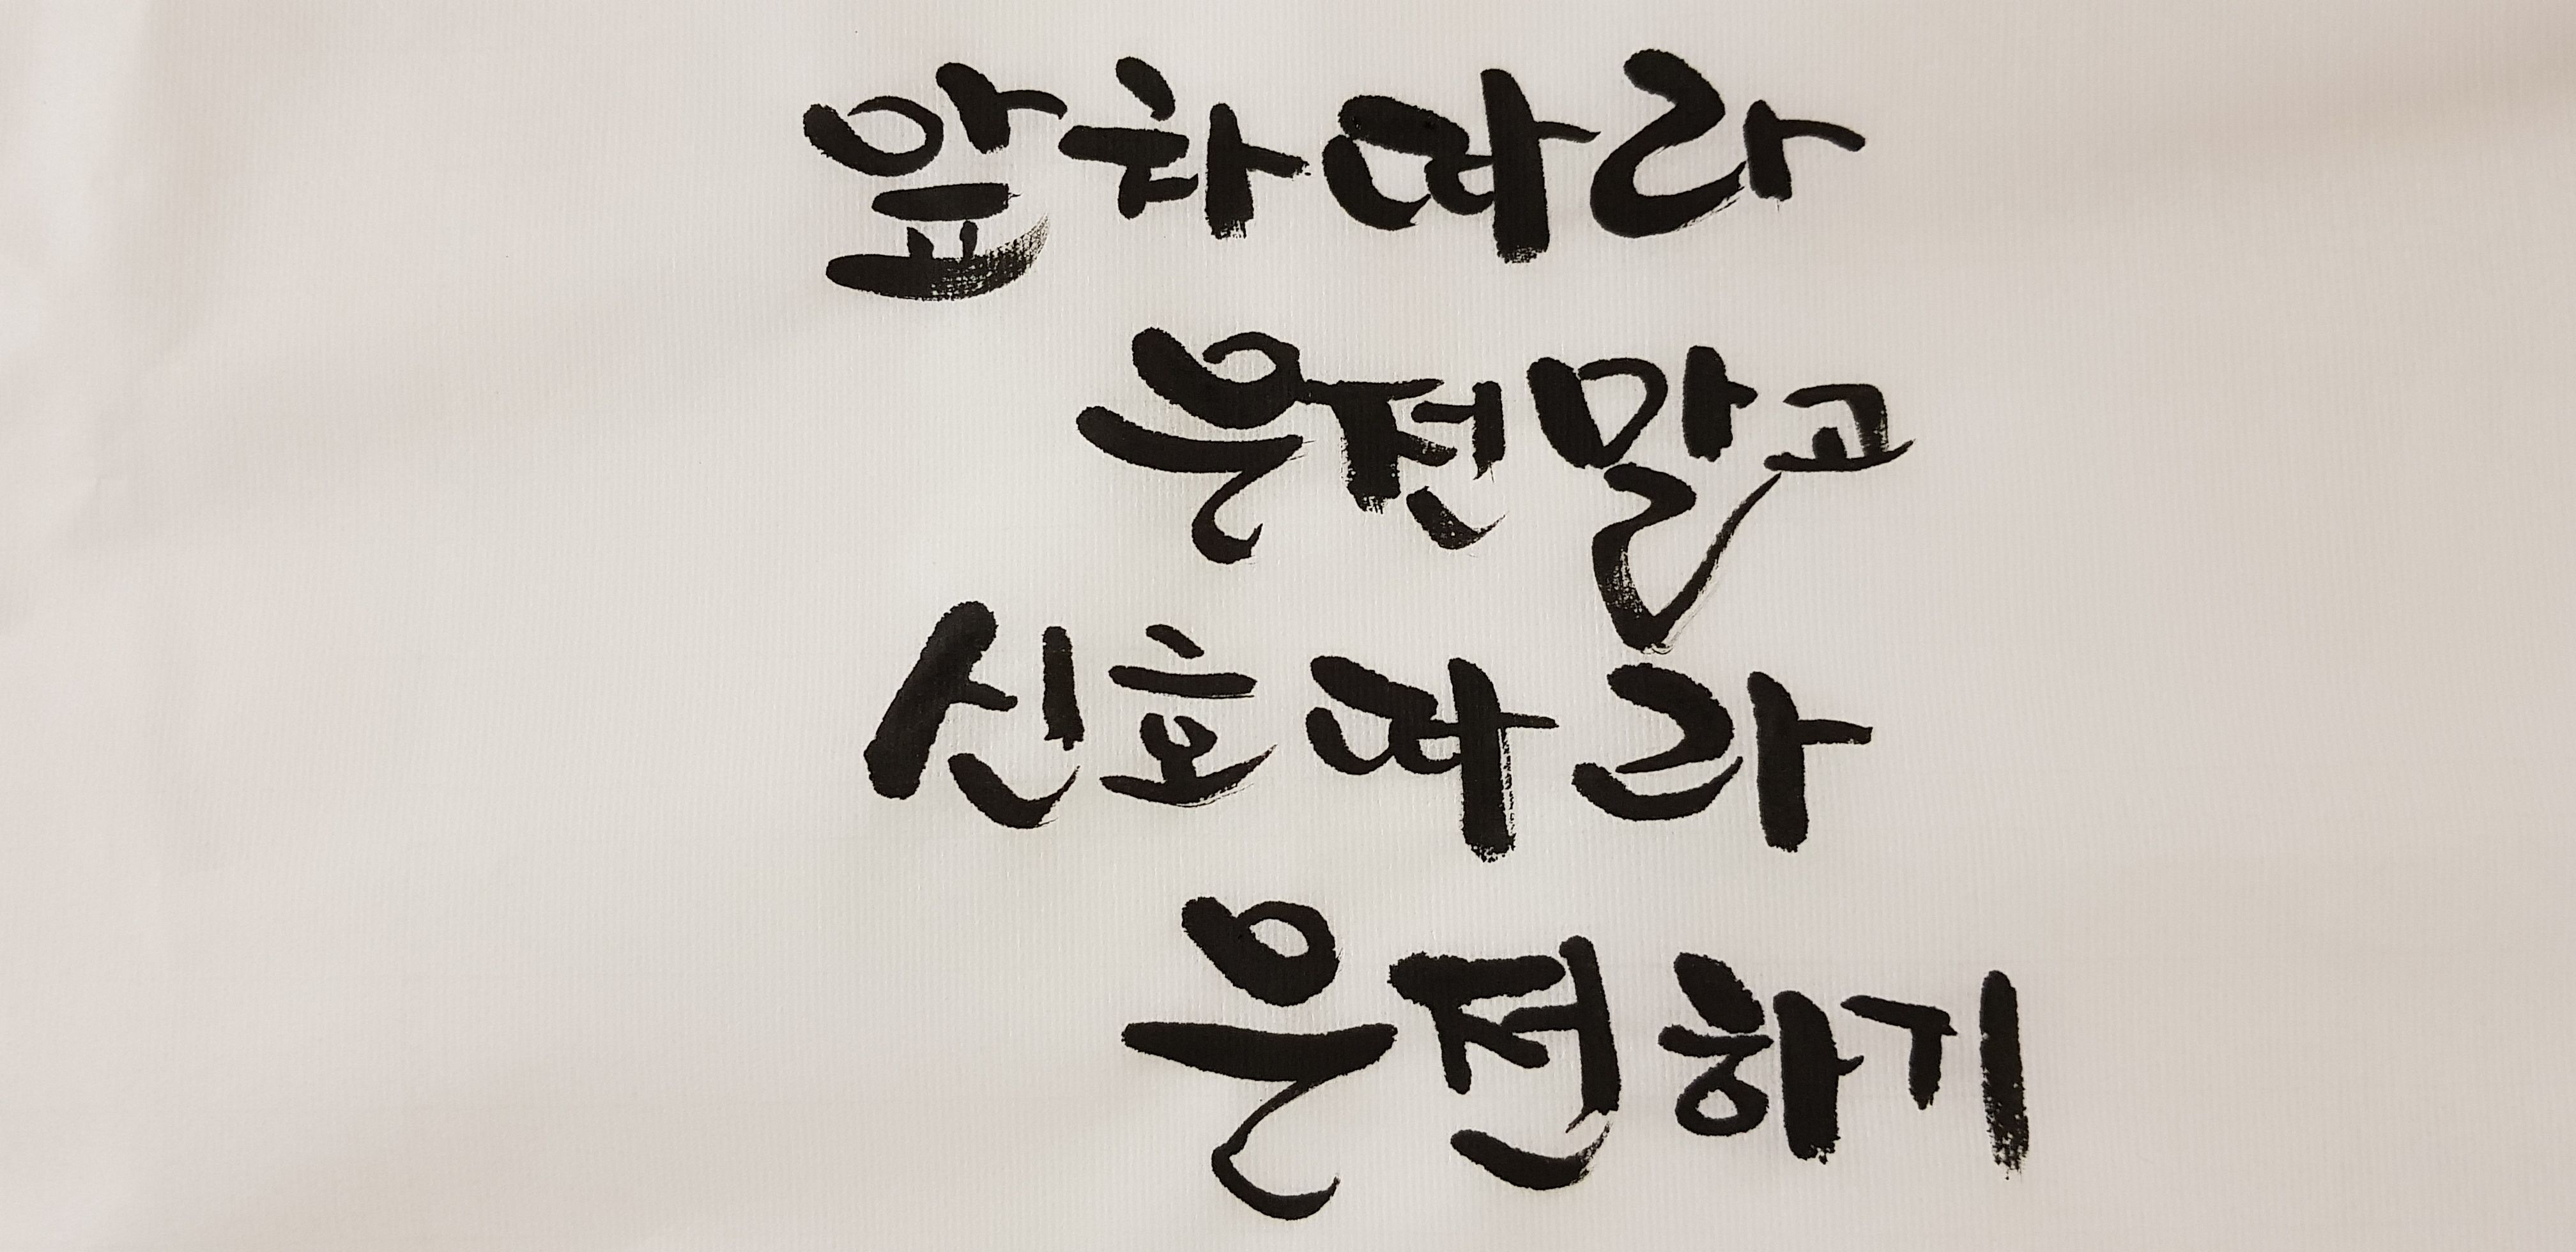 앞차따라
운전말고
신호따라
운전하기